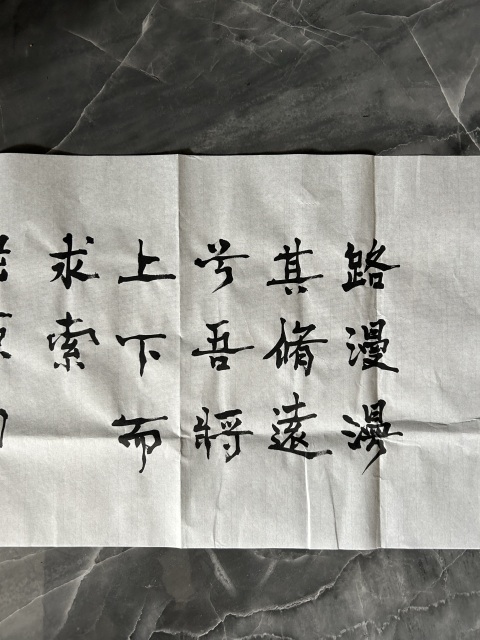 路漫漫
其脩遠
兮吾將
上下而
求索